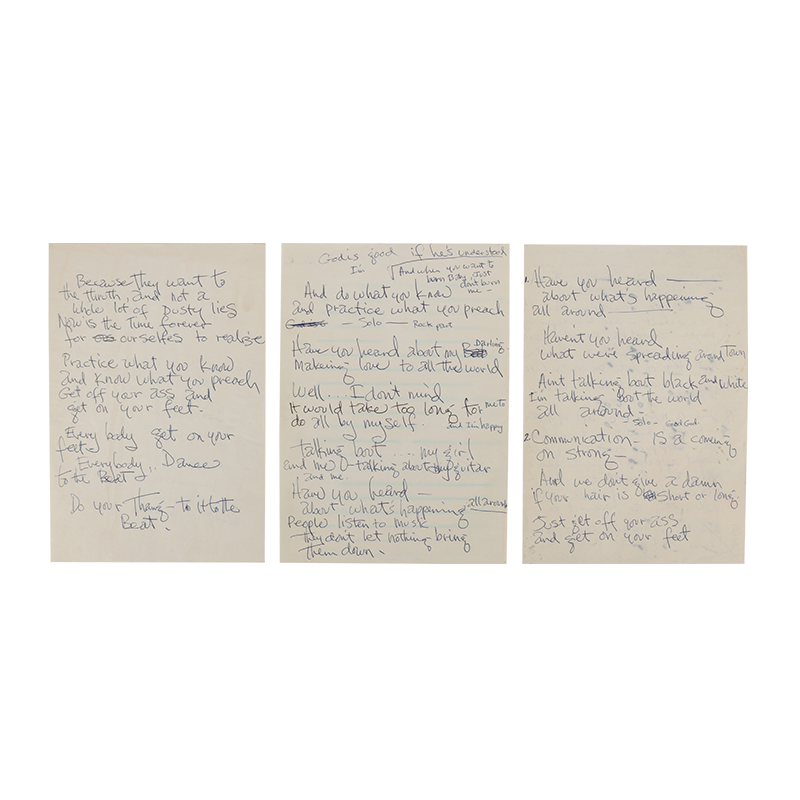 Because they want to
the thruth, and not a
whole lot of Dusty lies
Now is the time forever
for ourselfes to realize
Practice what you know
and know what you preach
Get off your ass and
get on your feet.
Every body get on your
feet,
Everybody.. Dance
to the Beat,
Do your Thang - to it to the
Beat.
God is good if he's understood
I'm
And when you want to
burn Baby, Just
don't burn
me -
And do what you know
and practice what you preach
- Solo - Rock part
Have you heard about my Darling -
Makeing love to all the world
Well... I don't mind
It would take too long for me to
do all by myself. and I'm happy
talking bout .... my girl
and me - talking about my guitar
and me.
Have you heard -
about what's happening - all around
People listen to music
they don't let nothing bring
them down.
1. Have you heard -
about what's happening
all around
Havent you heard
what we're spreading around Town
Aint talking bout black and white
I'm talking 'bout the world
all around -
- Solo -
2. Communication - is a coming
on strong -
And we don't give a damn
if your hair is short or long
Just get off your ass
and get on your feet